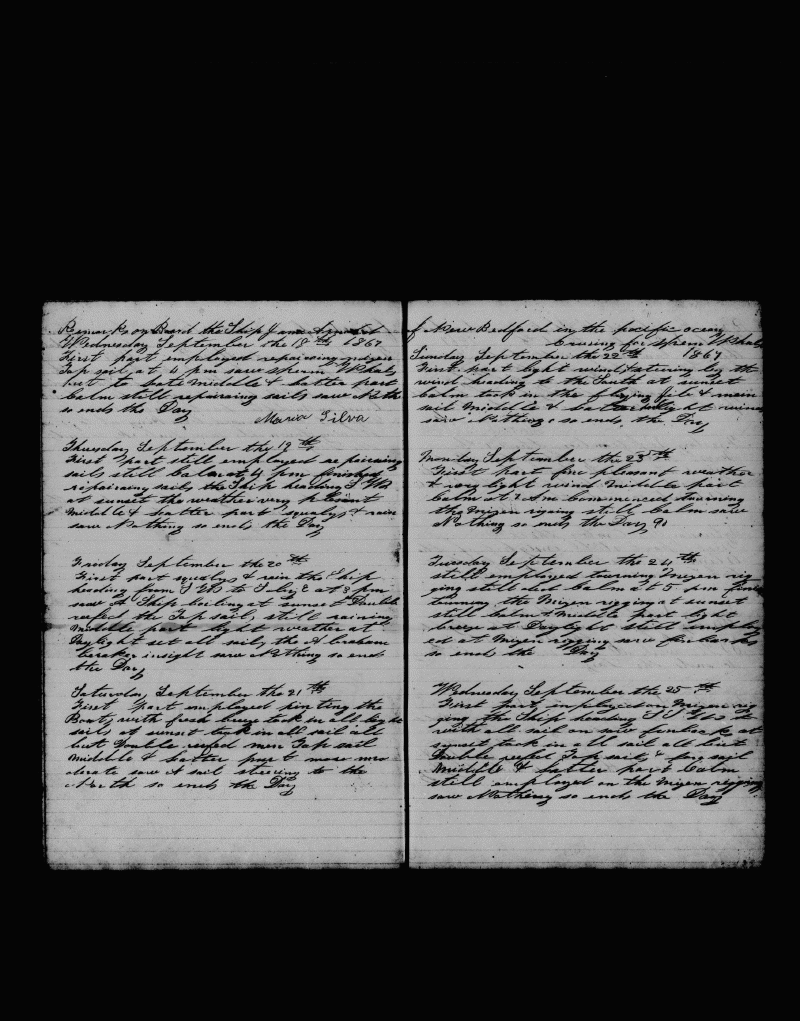 Remarks on Board the Ship James Arnold
Wednesday September the 18th 1867
First part employed repairing mizen
Top sail, at 4 pm saw sperm Whals
but to bate Middle & latter part
balm still repairing sails saw Noth
so ends the Day
Maria Silva
Thursday September the 19th
First part still employed repairing
sails still balm at 4 pm finished
repairing sails the Ship heading
at sunset the weather very plesent
Middle & latter part squalys & rain
saw Nothing so ends the Day
Friday September the 20th
First part squalys & rain the Ship
heading from to S by E at 3 pm
saw a Ship boiling at sunset Double
reefed the Top sail, still raining
Middle part light weather at
Daylight set all sail, the Abraham
Beraker insight saw Nothing so end
the Day
Saturday September the 21th
First part employed painting the
Boats, with fresh breeze took in all light
sails at sunset took in all sail all
but Double reefed main Top sail
Middle & latter part more mo
derate saw a sail steering to the
North so ends the Day
of New Bedford in the pacific ocean
Crusing for sperm Whals
Sunday September the 22th 1867
First part light wind starring by the
wind heading to the South at sunset
balm took in the flying gib & main
sail Middle & latter light wind
saw Nothing so ends the Day
Monday September the 23th
First part fine pleasant weather
& very light wind Middle part
balm at 7 Am Commenced tourning
the Mizen riging still balm saw
Nothing so ends the Day
Tuesday September the 24th
still employed tourning Mizen rig
ging still ded balm at 5 pm
tourning the Mizen rigging at sunset
still balm & Middle part light
breeze at Daylight still employ
ed at Mizen rigging saw finbacks
so ends the Day
Wednesday September the 25th
First part employed on Mizen rig
ging the Ship heading
with all sail on saw finbacks at
sunset took in all sail all but
Double reefed Top sails & fore sail
Middle & latter part balm
still employed on the Mizen rigging
saw Nothing so ends the Day